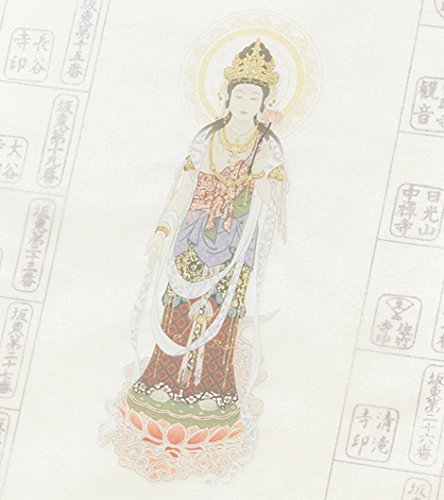 坂東第十五番
長谷
寺印
坂東第十九番
大谷
坂東第二十三番
坂東第二十七番
観音
日光山
中禅寺
佐竹
寺印
坂東第二十六番
清滝
寺印